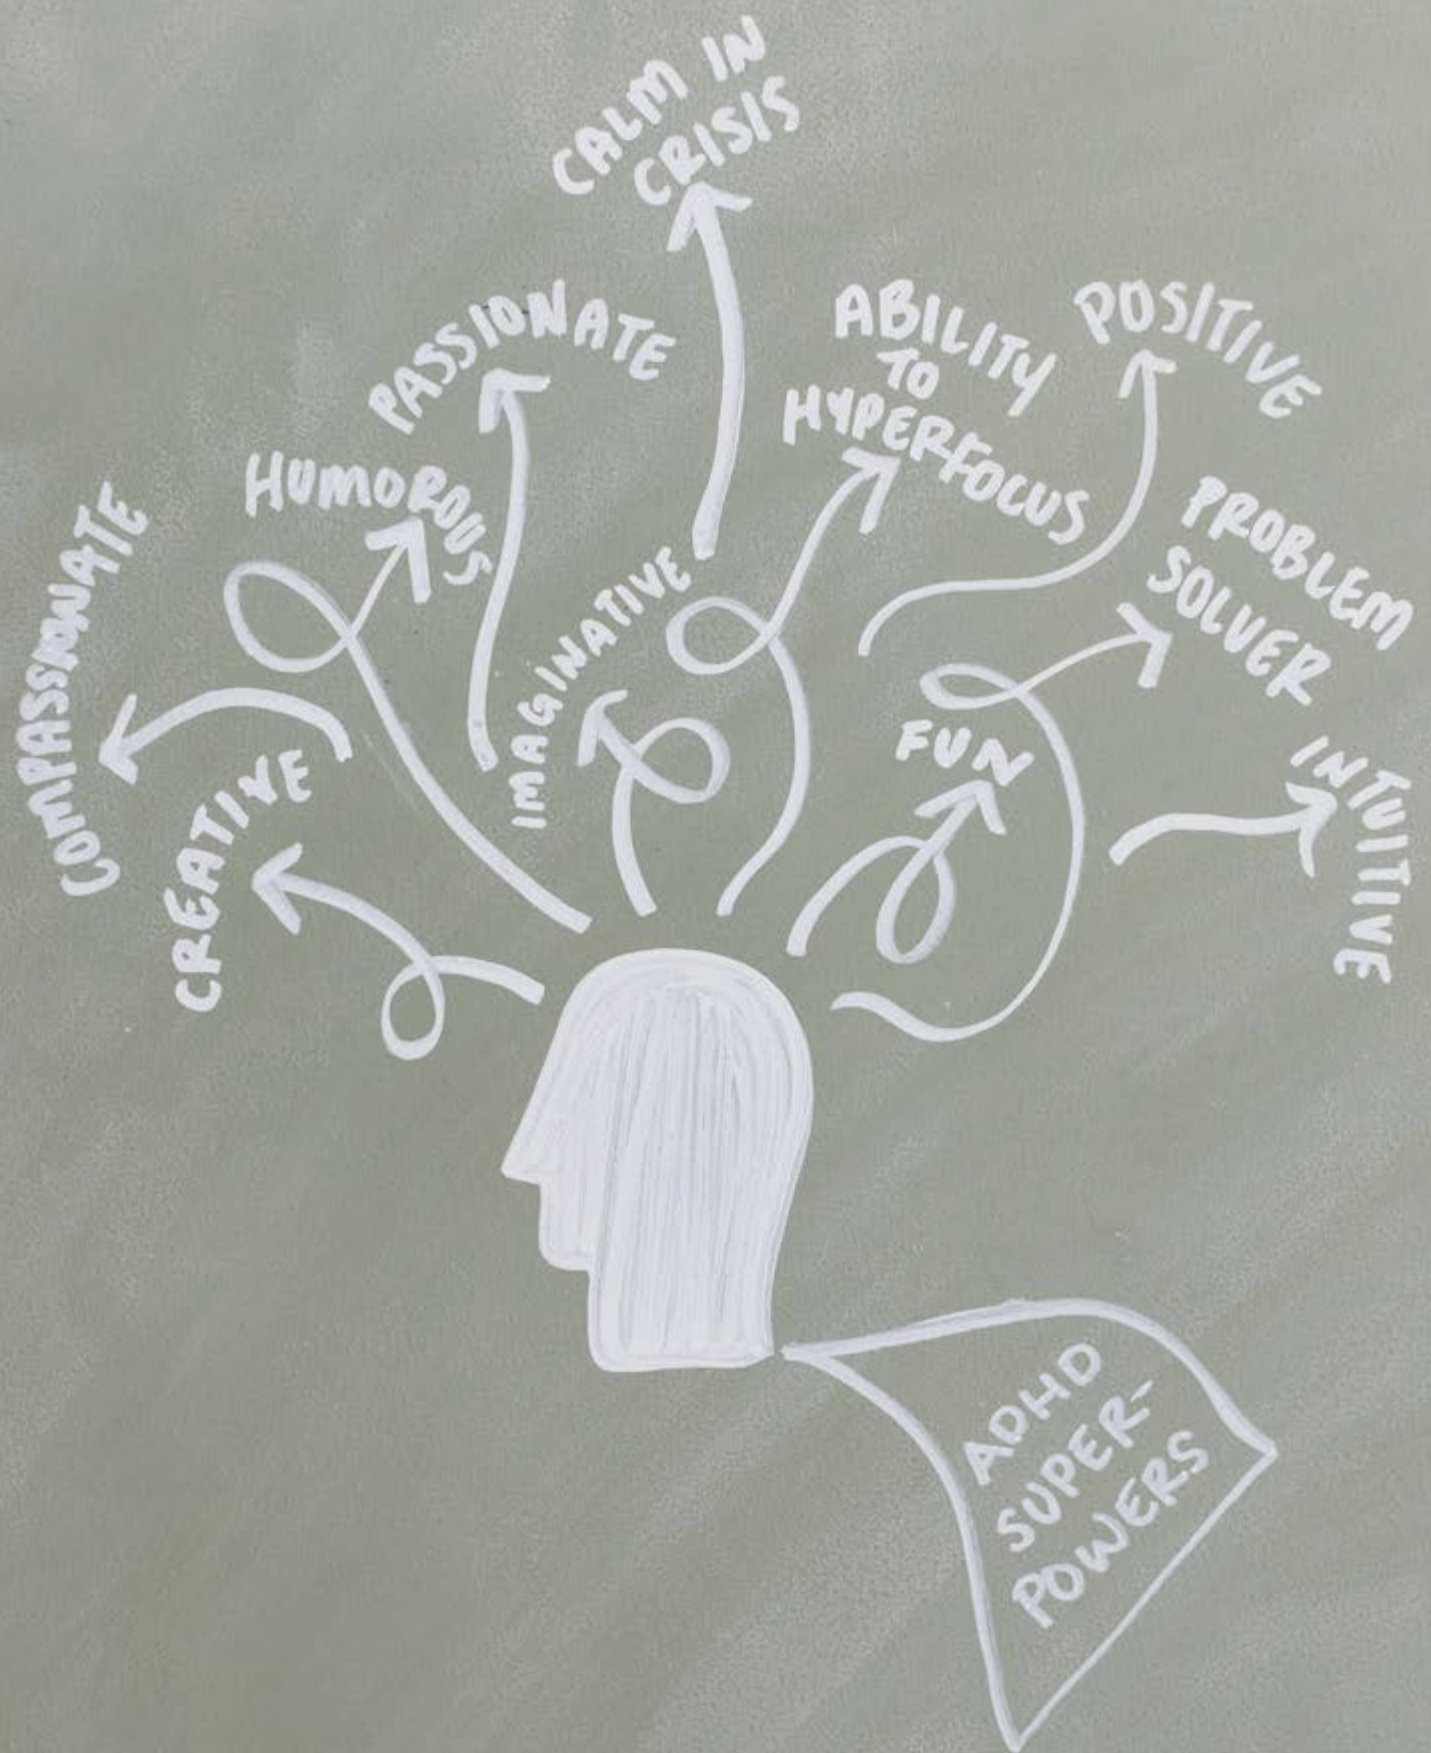 CALM IN
CRISIS
PASSIONATE
ABILITY
TO
HYPERFOCUS
POSITIVE
HUMOROUS
PROBLEM
SOLVER
COMPASSIONATE
IMAGINATIVE
FUN
CREATIVE
INTUITIVE
ADHD
SUPER-
POWERS